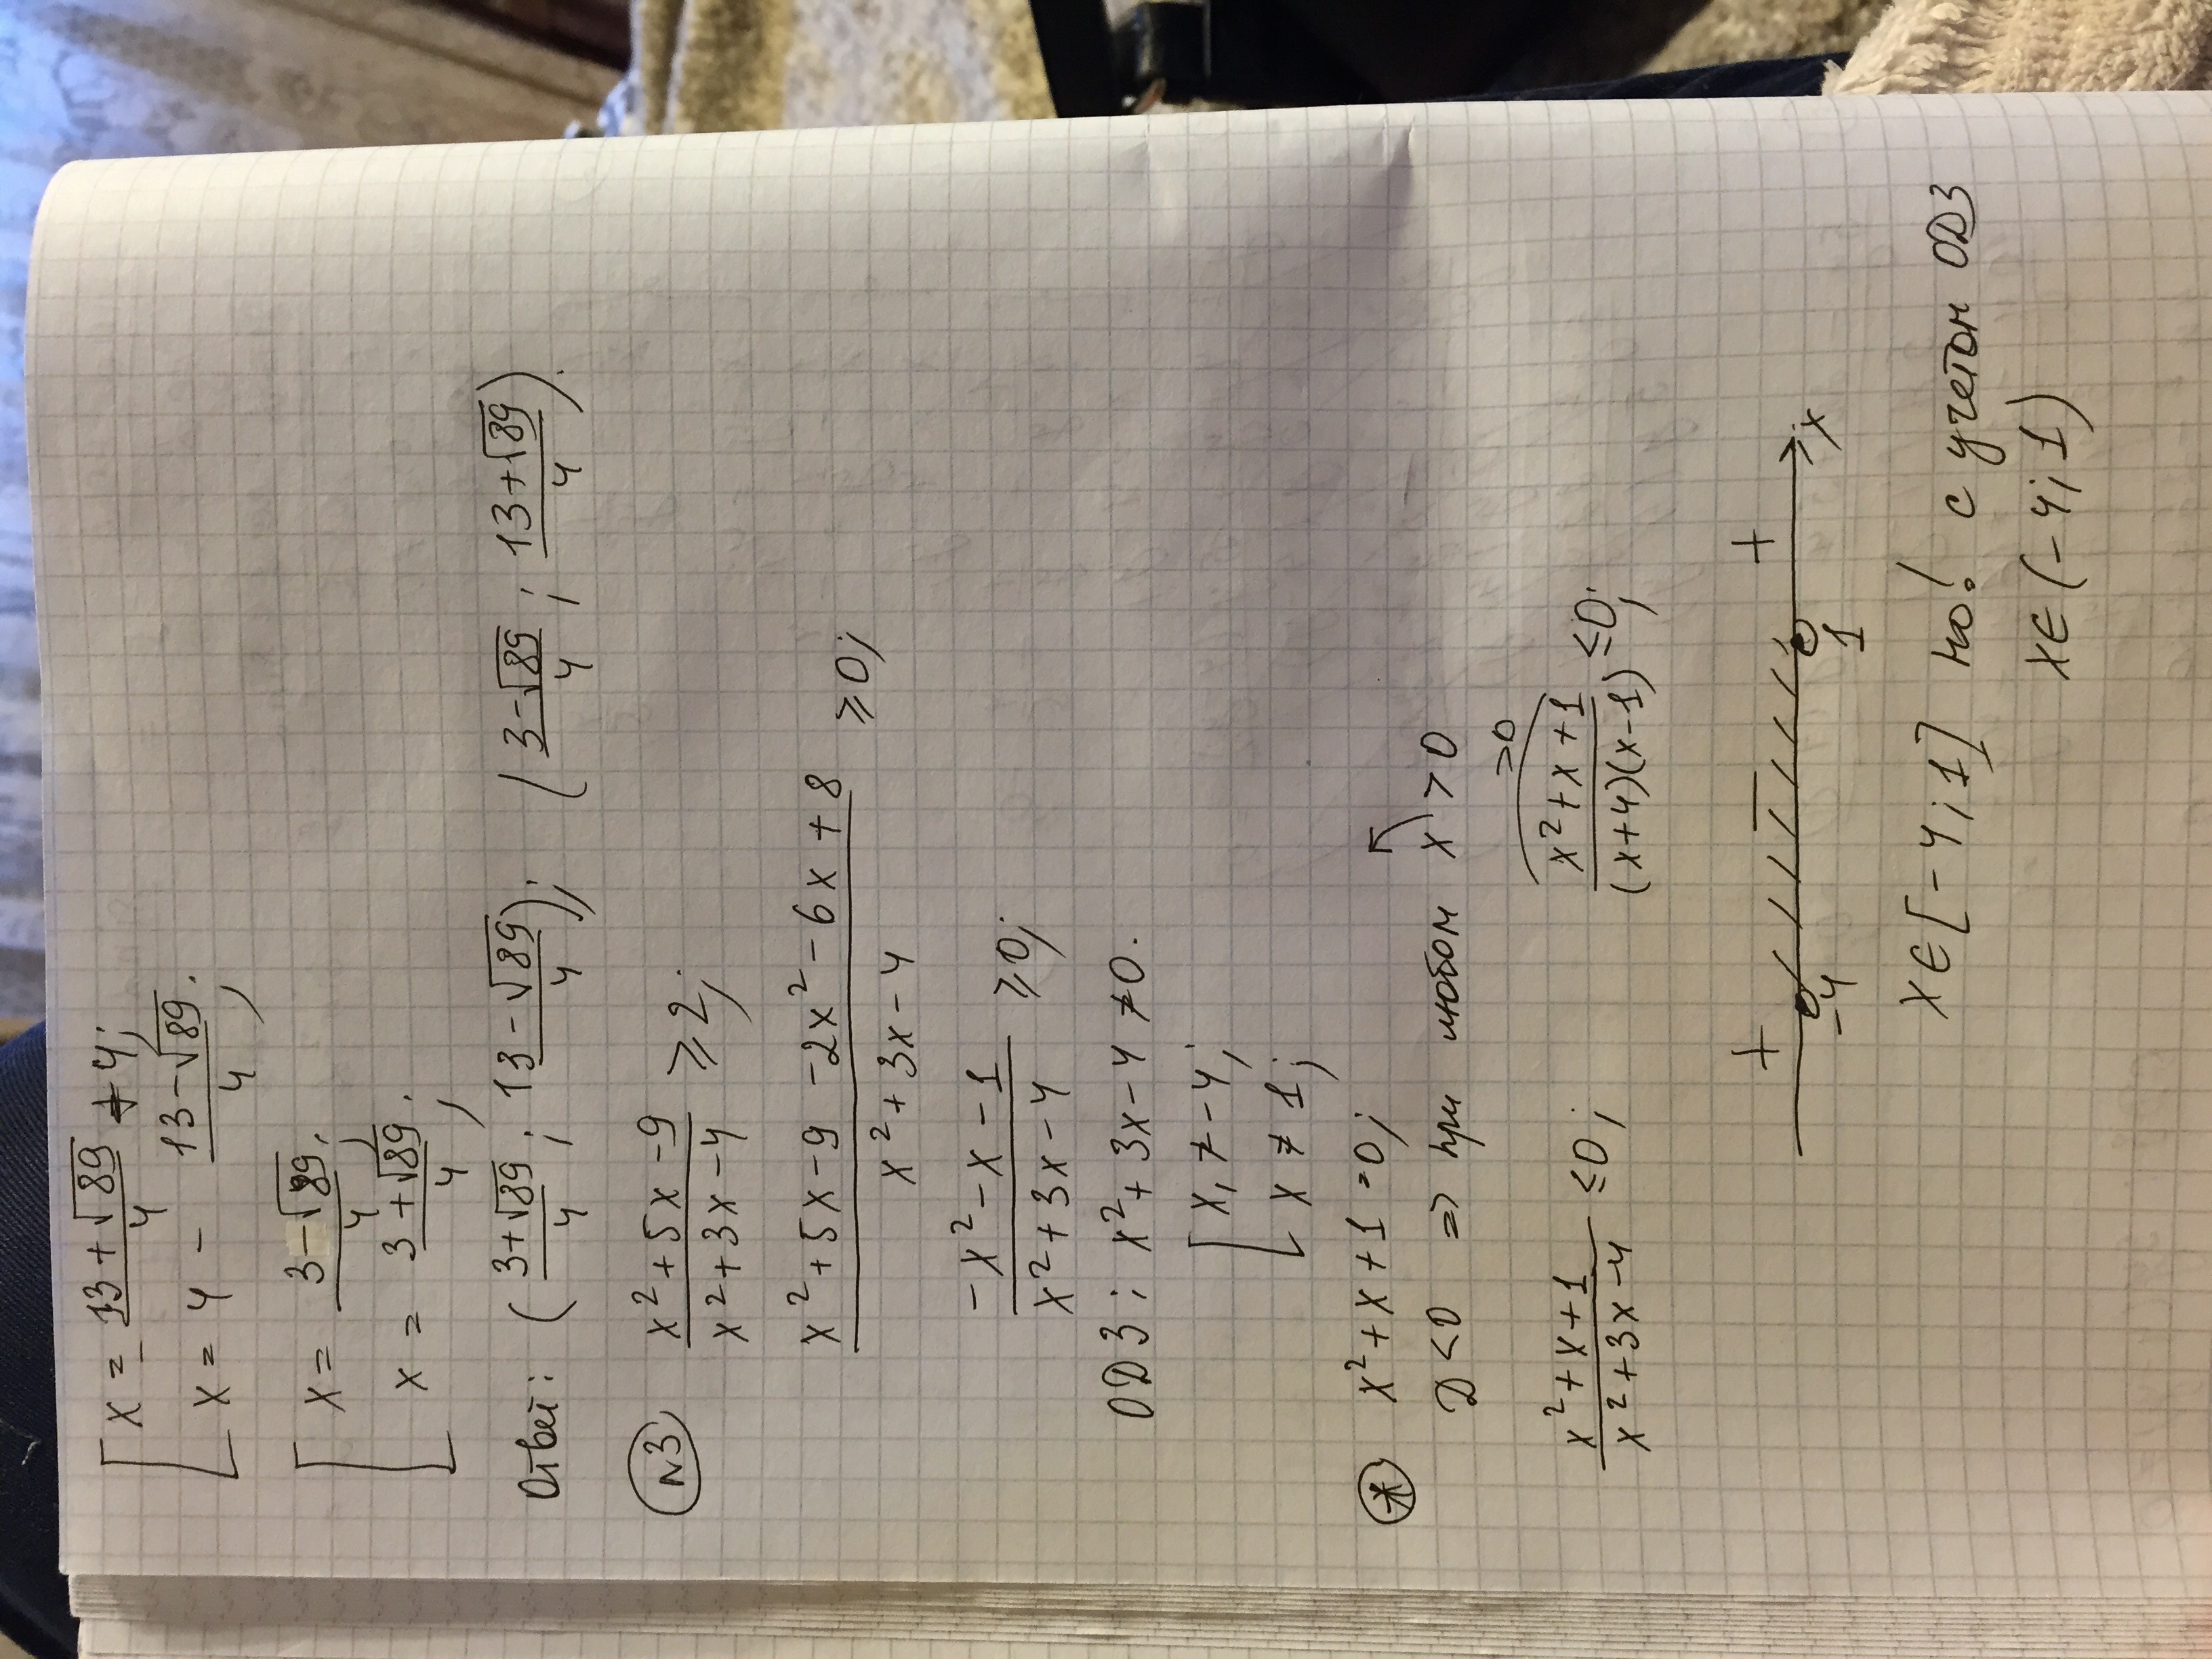 [ x = (13 + √89)/4 + 4;
x = 4 - (13 - √89)/4;
[ x = (3 - √89)/4;
x = (3 + √89)/4;
Ответ: ((3+√89)/4; (13 - √89)/4); ((3-√89)/4; (13+√89)/4).
N3 (x² + 5x - 9)/(x² + 3x - 4) ≥ 2;
(x² + 5x - 9 - 2x² - 6x + 8)/(x² + 3x - 4) ≥ 0;
(-x² - x - 1)/(x² + 3x - 4) ≥ 0;
ОДЗ: x² + 3x - 4 ≠ 0.
[ x, ≠ -4;
x ≠ 1;
* x² + x + 1 = 0;
D < 0 => при любом x > 0
(x² + x + 1)/(x² + 3x - 4) ≤ 0; (x² + x + 1)/((x+4)(x-1)) ≤ 0; >0
+ - +
-4 1 x
x ∈ [-4; 1] но! с учетом ОДЗ
x ∈ (-4; 1)